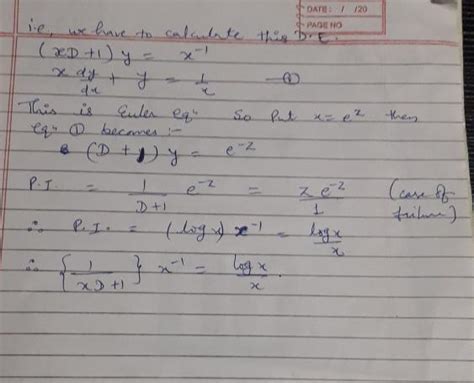 DATE: / /20
PAGE NO
i.e, we have to calculate this D.E.
(xD+1) y = x⁻¹
x dy/dx + y = 1/x — ①
This is Euler eqⁿ So Put x = e^z then
eqⁿ ① becomes :-
(D + 1) y = e^-z
P.I. = 1/(D+1) e^-z = z e^-z/1 (case of failure)
∴ P.I. = (log x) x⁻¹ = log x/x
∴ {1/(xD+1)} x⁻¹ = log x/x.